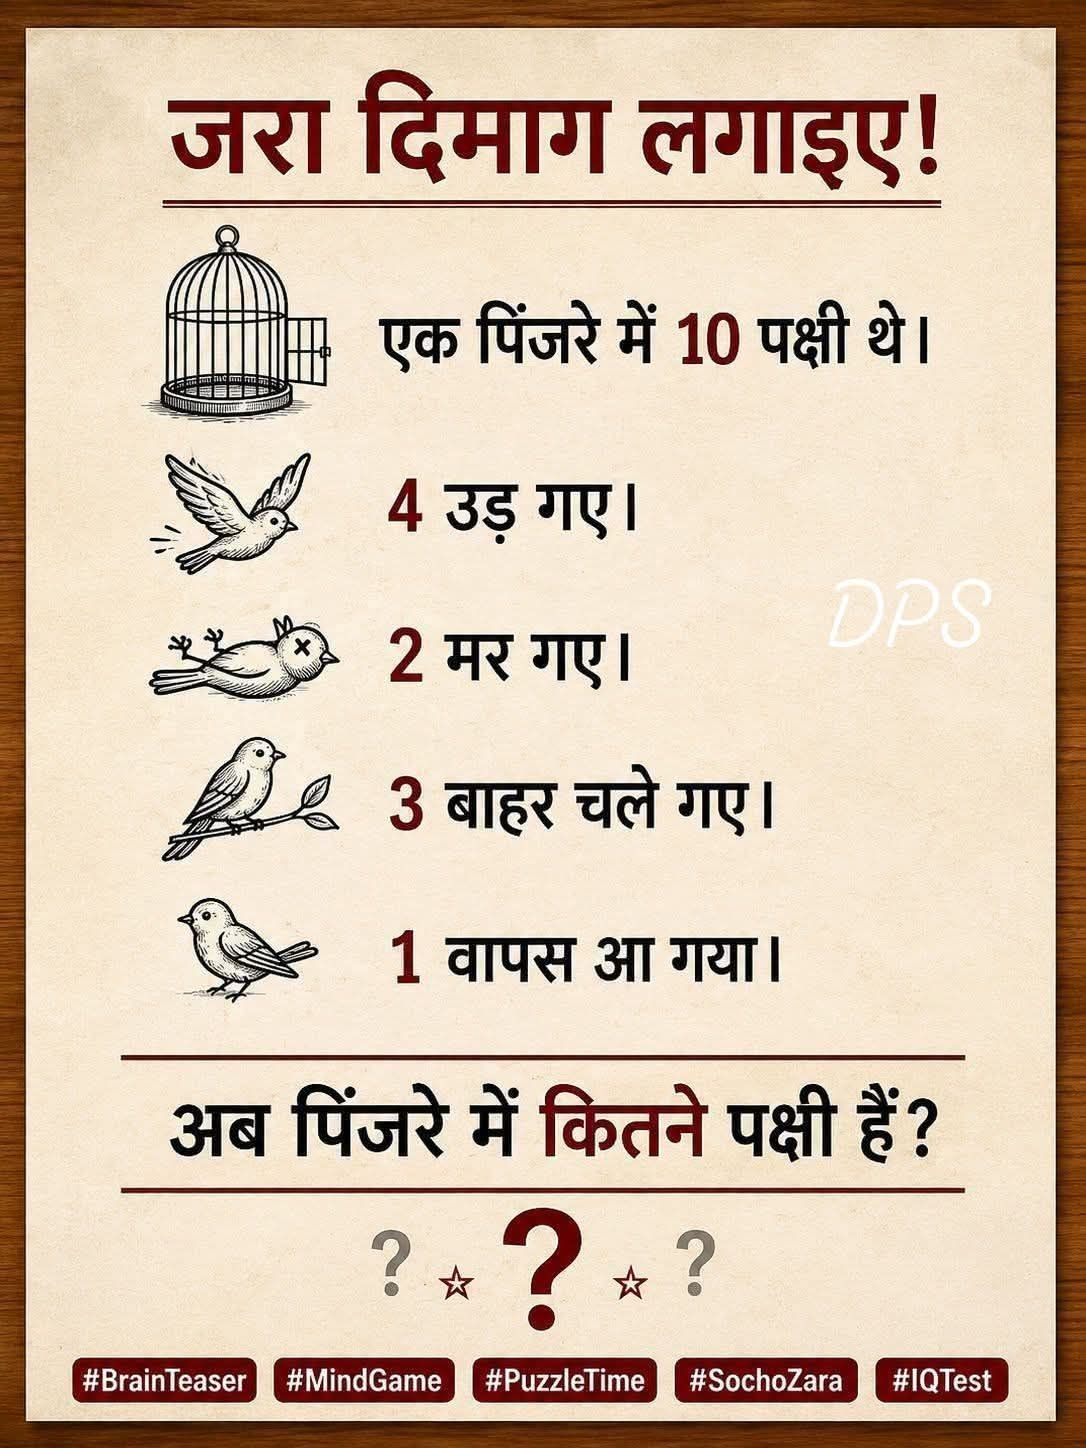 जरा दिमाग लगाइए!
एक पिंजरे में 10 पक्षी थे।
4 उड़ गए।
DPS
2 मर गए।
3 बाहर चले गए।
1 वापस आ गया।
अब पिंजरे में कितने पक्षी हैं?
? ? ?
#BrainTeaser #MindGame #PuzzleTime #SochoZara #IQTest